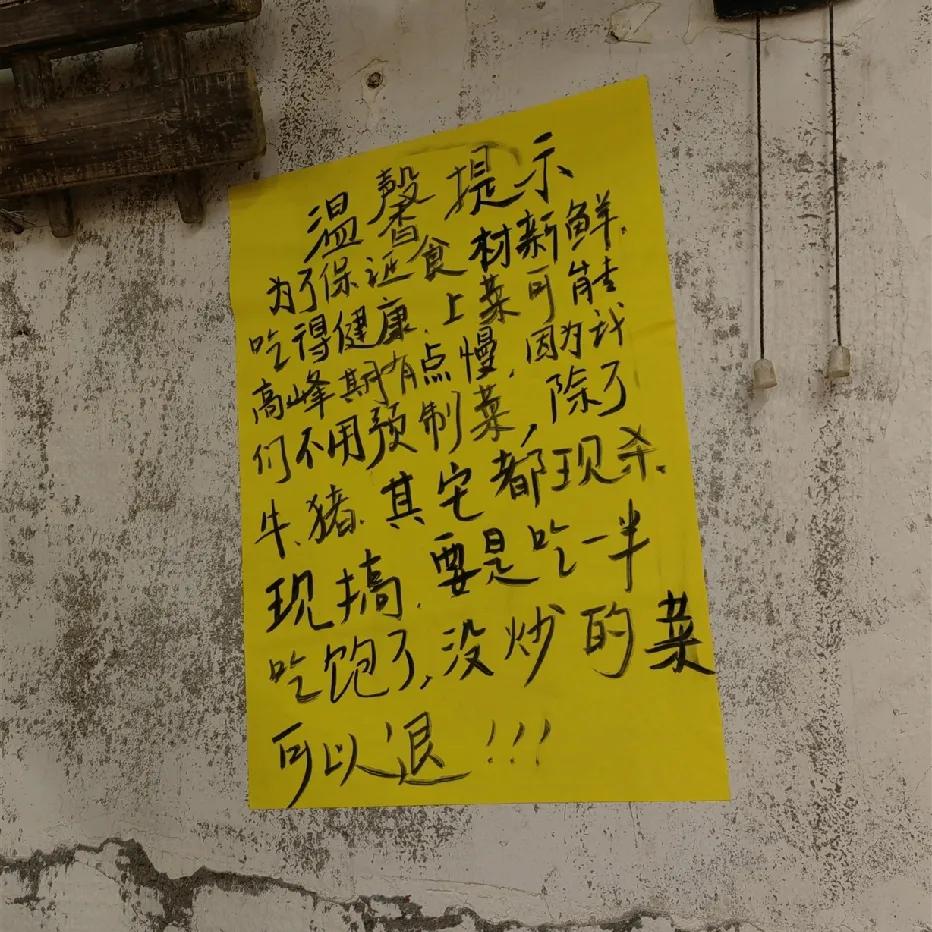 温馨提示
为了保证食材新鲜.
吃得健康.上菜可能
高峰期有点慢.因为我
们不用预制菜,除了
牛.猪.其它都现杀.
现搞.要是吃一半
吃饱了,没炒的菜
可以退!!!